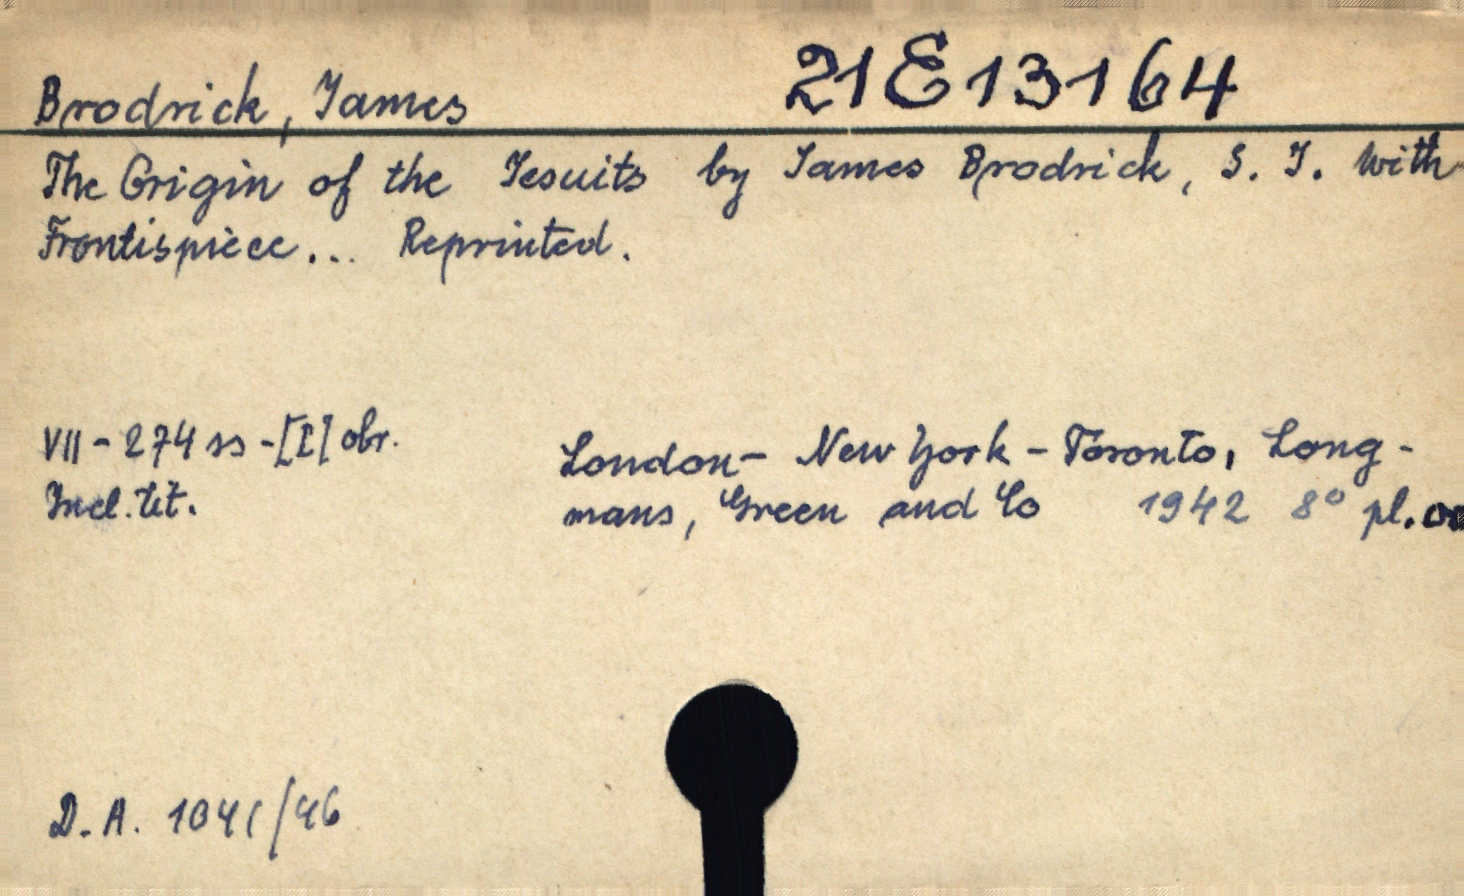 Brodrick, James 21E13164
The Origin of the Jesuits by James Brodrick, S. J. With
Frontispiece... Reprinted.
VII - 274 ss - [I] obr.
Incl. tit.
London - New York - Toronto, Long-
mans, Green and Co 1942 8° pl.
D. A. /46